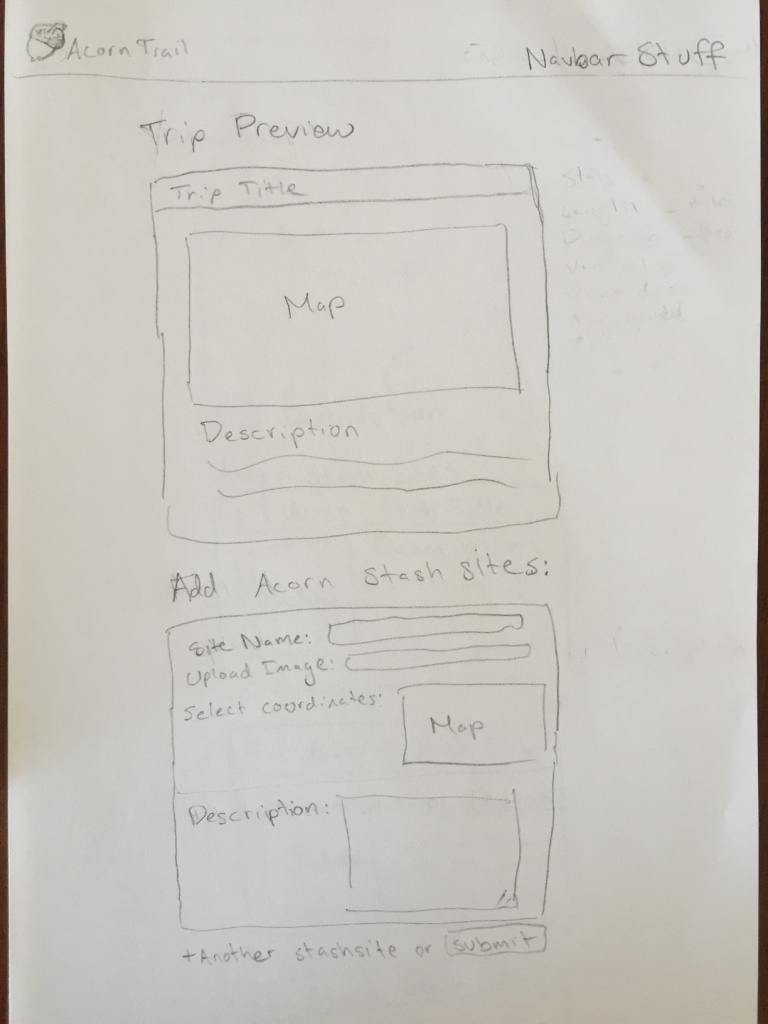 Acorn Trail
Navbar Stuff
Trip Preview
Trip Title
Map
Description
Add Acorn Stash sites:
Site Name:
Upload Image:
Select coordinates:
Map
Description:
+Another stashsite or submit